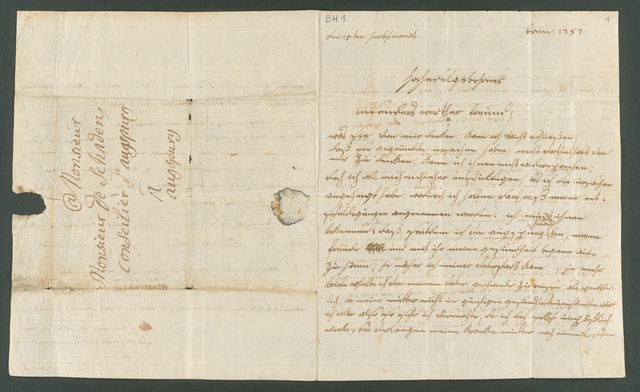 BH 1.
1
den 15ten herbstmonat. bonn 1787.
hochedelgebohrner
insonders werther freund!
was sie von mir denken, kann ich leicht schließen;
daß sie gegründete ursachen haben, nicht vortheilhaft von
mir zu denken, kann ich ihnen nicht widersprechen;
doch ich will mich nicht eher entschuldigen, bis ich die ursachen
angezeigt habe, wodurch ich hoffen darf, daß meine ent-
schuldigungen angenommen werden. ich muß ihnen
bekennen: daß, seitdem ich von augspurg bin, meine
freude und mit ihr meine gesundheit begann auf-
zuhören; je näher ich meiner vaterstadt kam, je mehr
briefe erhielte ich von meinem vater, geschwinder zu reisen als gewöhn-
lich, da meine mutter nicht in günstigen gesundheitsumständen wär;
ich eilte also so sehr ich vermochte, da ich doch selbst unpäßlich
wurde: das verlangen meine kranke mutter noch einmal sehen
a Monsieur
Monsieur de Schaden
Conseilier d'augspurg
a
augspurg